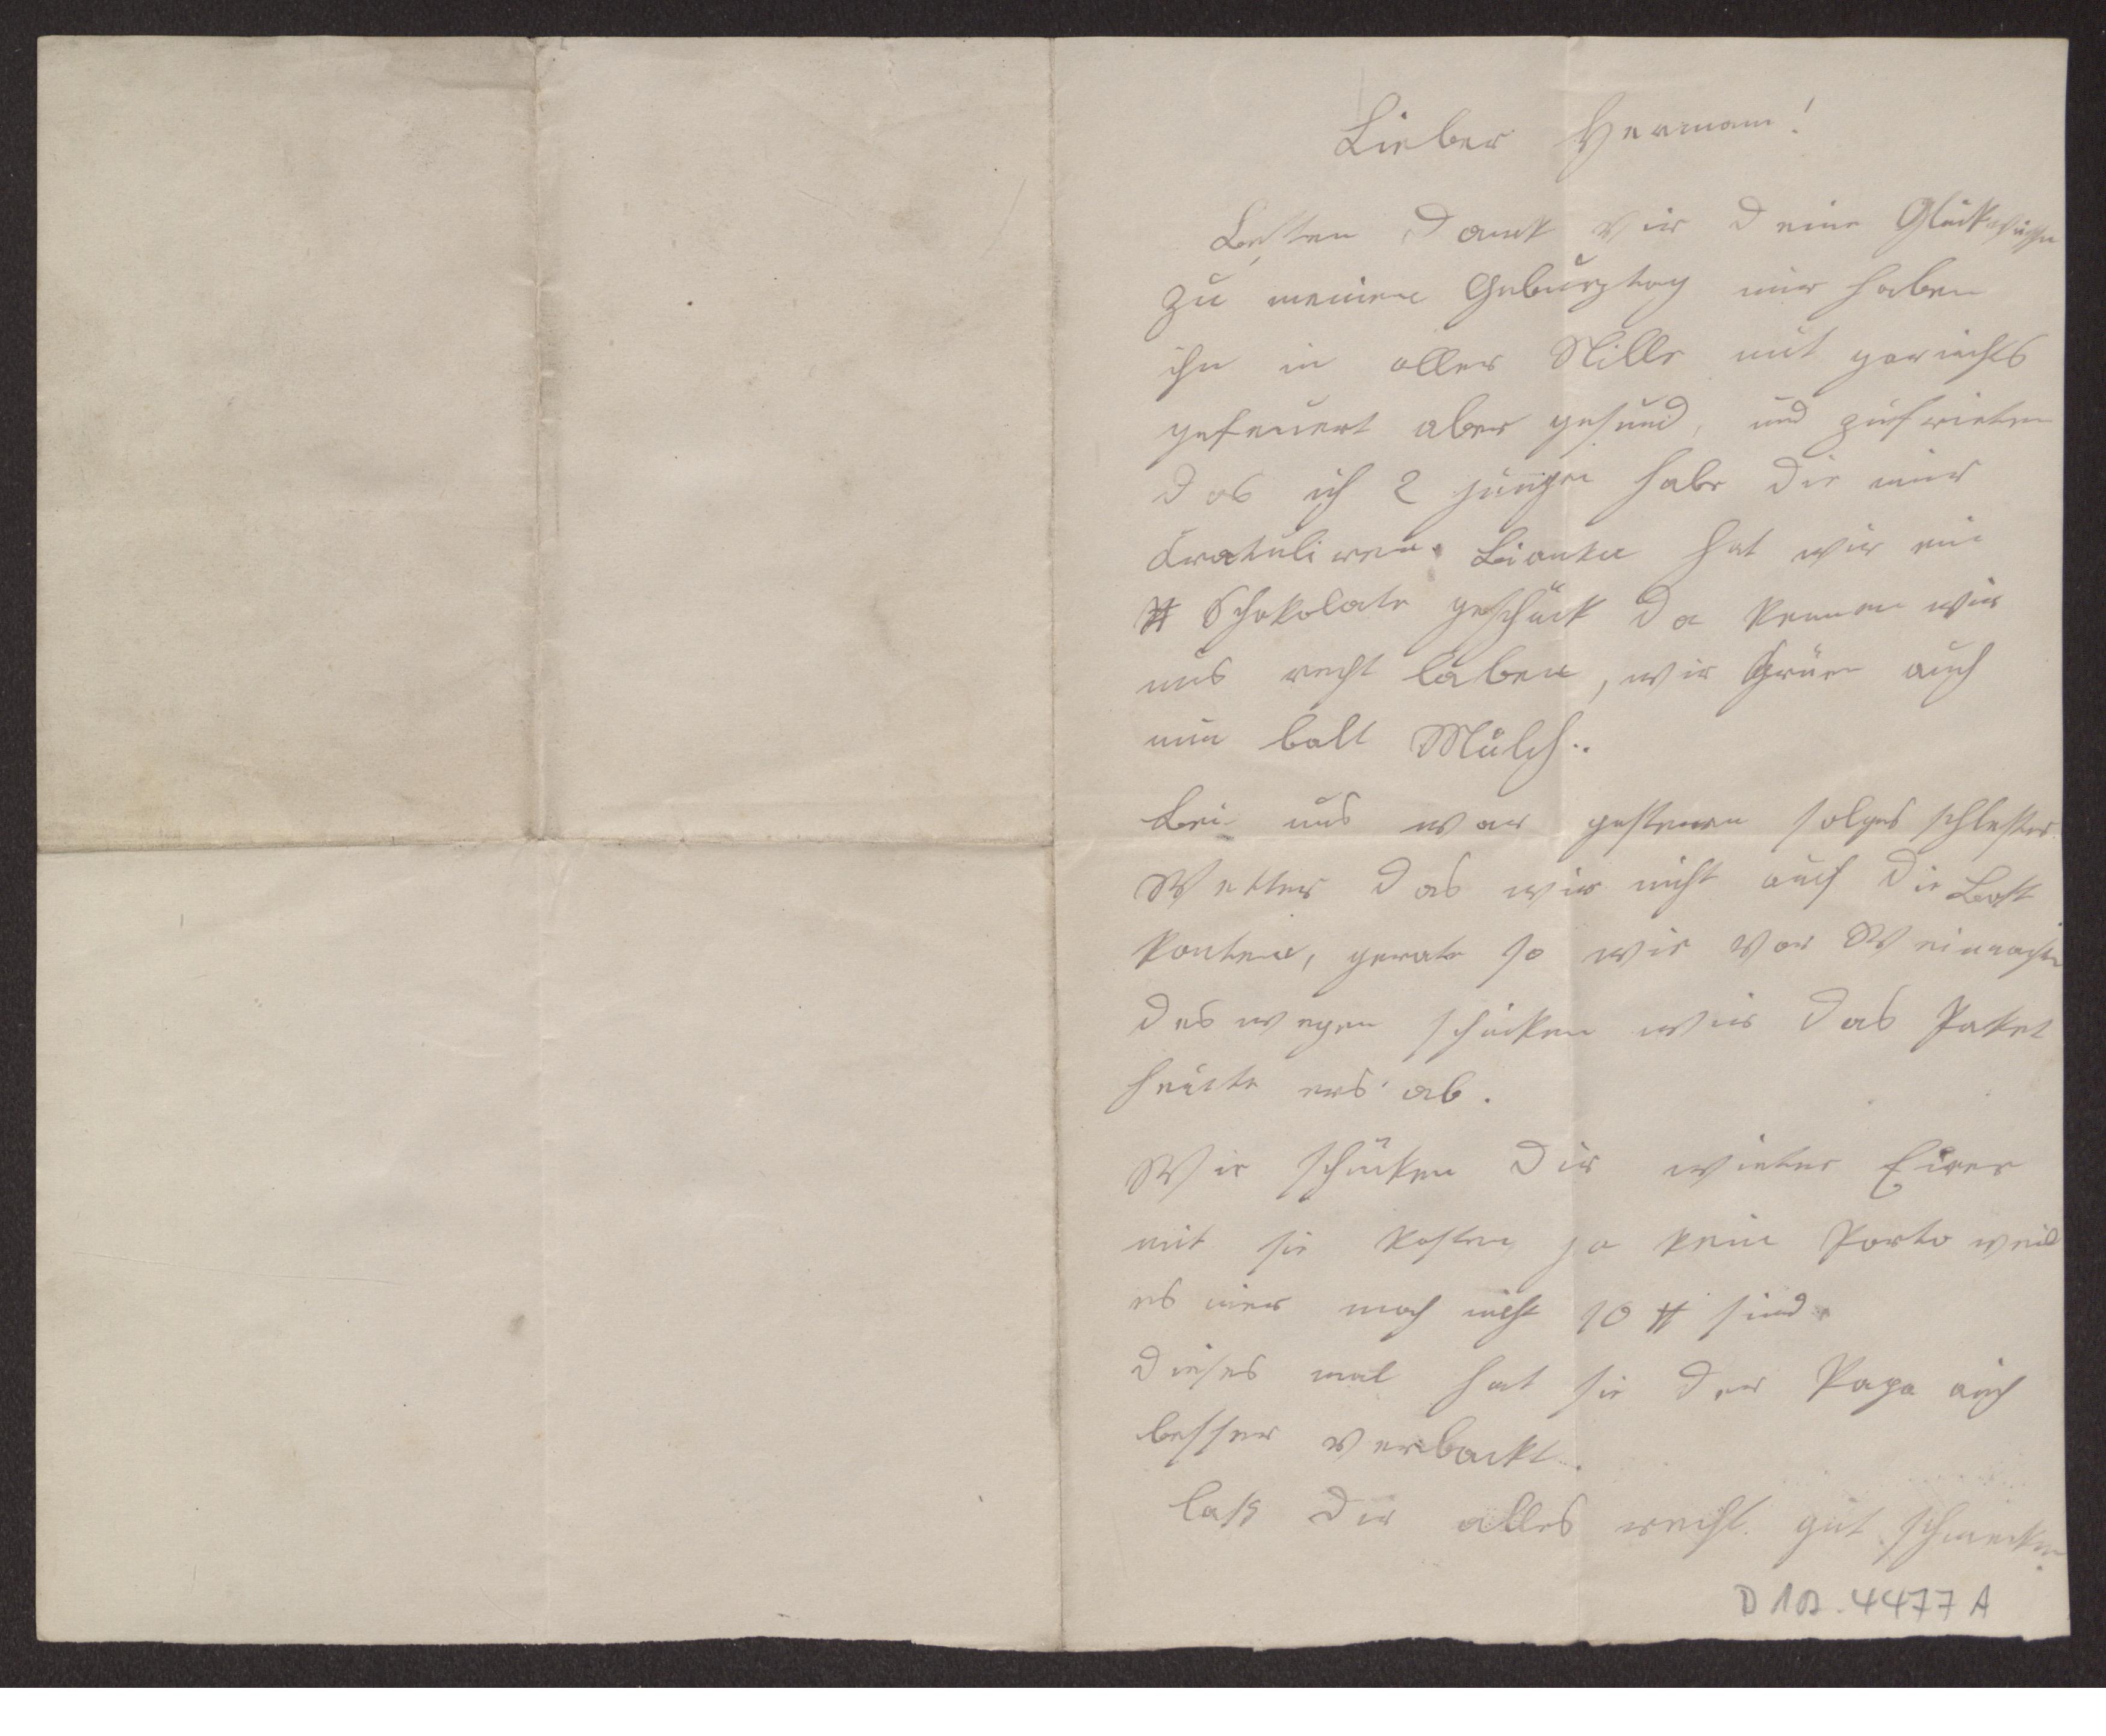 Lieber Hermann!
Besten Dank vir deine Glückwüsche
zu meinen Geburztag mir haben
ihn in aller Stille mit garnichts
gefeuert aber gesund, und zufrieten
das ich 2 jungen habe die mir
Kratuliren. Bianka hat mir ein
℔ Schokolate geschückt da kennen wir
uns recht laben, wir Grüen auch
nun balt Mülch..
Bei uns war gesteren solges schlestes
Wetter das wir nicht auf die Bost
konten, gerate so wie vor Weinnachten
deswegen schücken wir das Paket
heute ers ab.
Wir schücken dir wieter Eirer
mit sie kosten ja kein Porto weil
es imer noch nicht 10 ℔ sind.
dieses mal hat sie der Papa auch
besser verbackt.
lass dir alles recht gut schmecken.
D 10. 4477 A